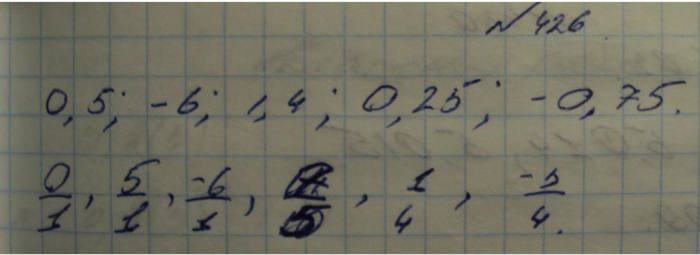 № 426
0,5; -6; 1,4; 0,25; -0,75.
0/1, 5/1, -6/1, , 1/4, -3/4.